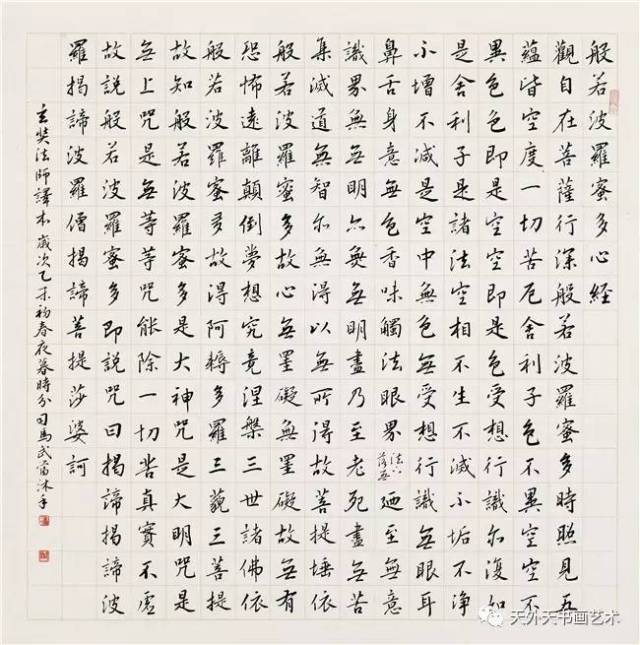 般若波羅蜜多心経
觀自在菩薩行深般若波羅蜜多時照見五
蘊皆空度一切苦厄舍利子色不異空空不
異色色即是空空即是色受想行識亦復如
是舍利子是諸法空相不生不滅不垢不淨
不增不減是空中無色無受想行識無眼耳
鼻舌身意無色香味觸法眼界廼至無意
識界無無明亦無無明盡乃至老死盡無苦
集滅道無智亦無得以無所得故菩提埵依
般若波羅蜜多故心無罣礙無罣礙故無有
恐怖遠離顛倒夢想究竟涅槃三世諸佛依
般若波羅蜜多故得阿耨多羅三藐三菩提
故知般若波羅蜜多是大神咒是大明咒是
無上咒是無等等咒能除一切苦真實不虛
故說般若波羅蜜多即說咒曰揭諦揭諦波
羅揭諦波羅僧揭諦菩提莎婆訶
玄奘法師譯本歲次乙未初春夜暮時分司馬武當沐手
天外天书画艺术